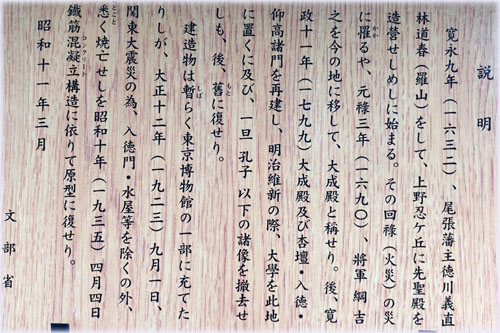 説明
寛永九年（一六三二）、尾張藩主徳川義直
林道春（羅山）をして、上野忍ケ丘に先聖殿を
造營せしめしに始まる。その回祿（火災）の災
に罹るや、元祿三年（一六九〇）、將軍綱吉
之を今の地に移して、大成殿と稱せり。後、寛
政十一年（一七九九）大成殿及び杏壇・入徳・
仰高諸門を再建し、明治維新の際、大學を此地
に置くに及び、一旦孔子以下の諸像を撤去せ
しも、後、舊に復せり。
建造物は暫らく東京博物館の一部に充てた
りしが、大正十二年（一九二三）九月一日、
関東大震災の為、入徳門・水屋等を除くの外、
悉く焼亡せしを昭和十年（一九三五）四月四日
鐵筋混凝立構造に依りて原型に復せり。
昭和十一年三月
文部省